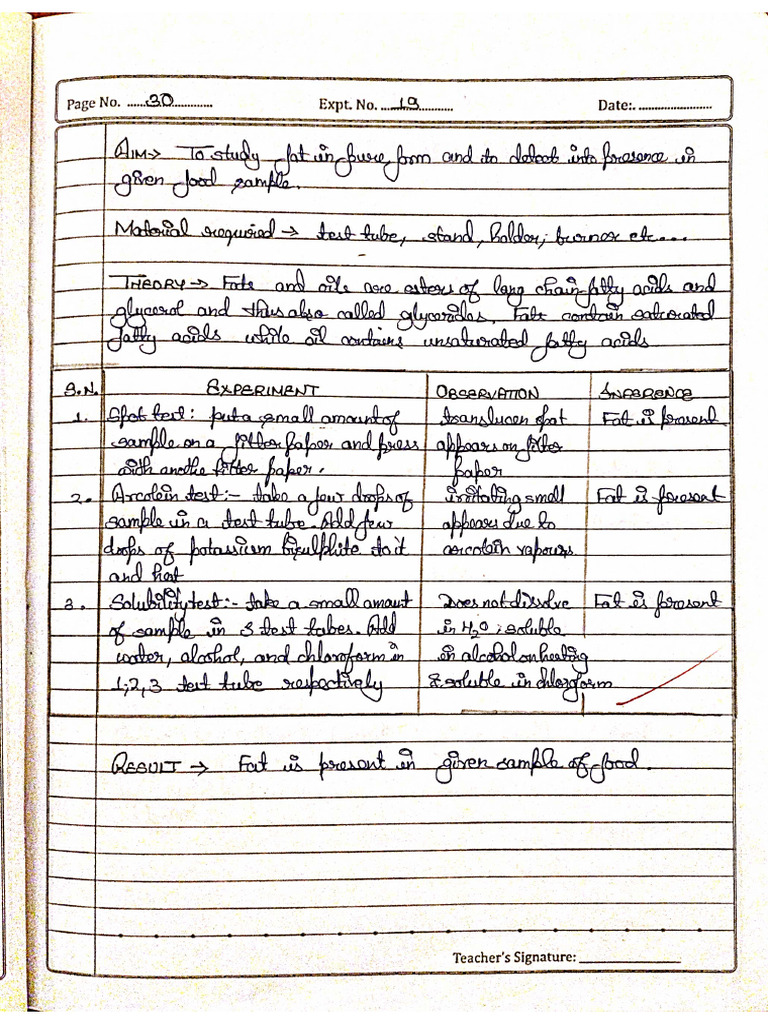 Page No. ......30............. Expt. No. ....19........... Date:. ........................
AIM→ To study fat in pure form and to detect into presence in
given food sample.
Material required → test tube, stand, holder, burner etc...
THEORY → Fats and oils are esters of long chain fatty acids and
glycerol and thus also called glycerides. Fats contain saturated
fatty acids while oil contains unsaturated fatty acids
S.N. EXPERIMENT OBSERVATION INFERENCE
1. Spot test: put a small amount of translucen spot Fat is present
sample on a filter paper and press appears on filter
with anothe filter paper. paper
2. Arcolein test:- take a few drops of irritating small Fat is present
sample in a test tube. Add few appears due to
drops of potassium bisulphite to it arcolein vapours
and heat
3. Solubility test:- take a small amount Does not dissolve Fat is present
of sample in 3 test tubes. Add in H2O, soluble
water, alcohol, and chloroform in in alcohol on heating
1, 2, 3 test tube respectively & soluble in chloroform
RESULT → Fat is present in given sample of food.
Teacher's Signature: ________________